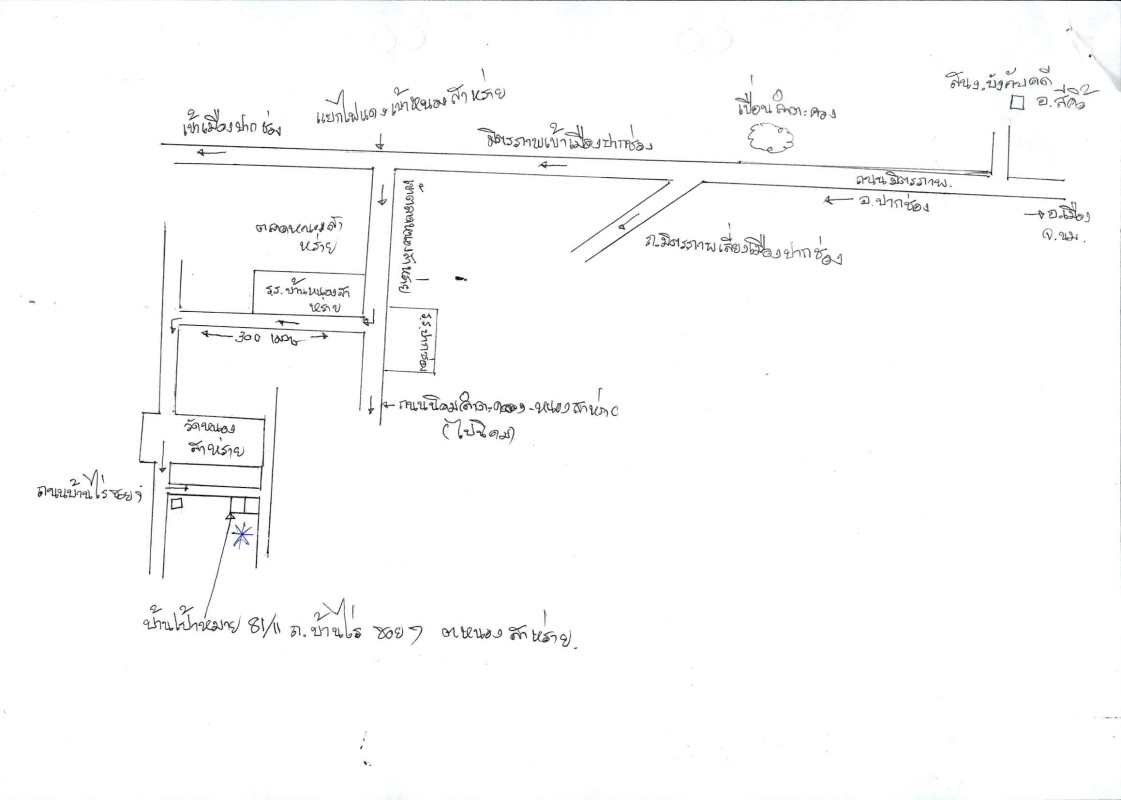 สนง.บังคับคดี
อ.สีคิ้ว
แยกไฟแดงเข้าหนองสาหร่าย
เข้าเมืองปากช่อง
มิตรภาพเข้าเมืองปากช่อง
เขื่อนลำตะคอง
ถนนมิตรภาพ.
อ.ปากช่อง
อ.เมือง
จ.นม.
ถ.มิตรภาพเลี่ยงเมืองปากช่อง
ตลาดหนองสา
หร่าย
ร.ร.บ้านหนองสา
หร่าย
300 เมตร
ร.ร.ปากช่อง
ถนนนิคมลำตะคอง-หนองสาหร่
(ไปนิคม)
วัดหนอง
สาหร่าย
ถนนบ้านไร่ซอย 7
บ้านเป้าหมาย 81/11 ถ.บ้านไร่ ซอย 7 ต.หนองสาหร่าย.